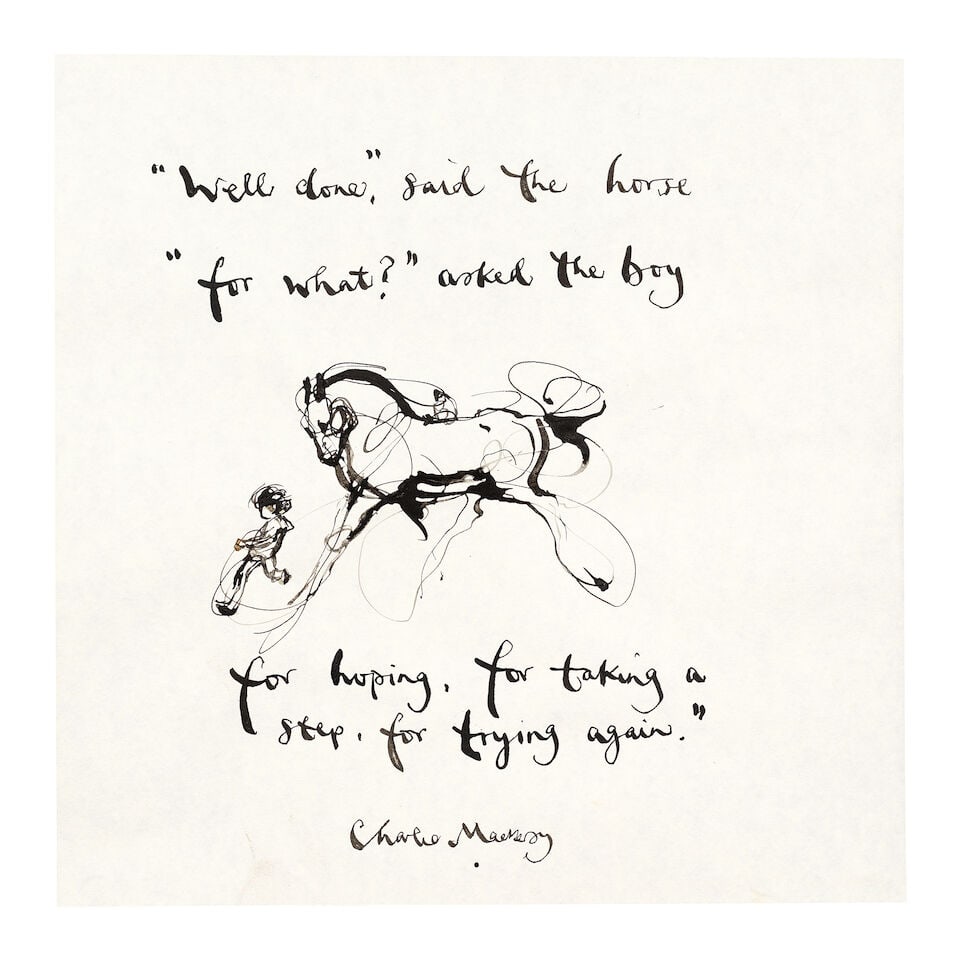 "Well done", said the horse
"for what?" asked the boy
for hoping, for taking a
step, for trying again."
Charlie Mackesy